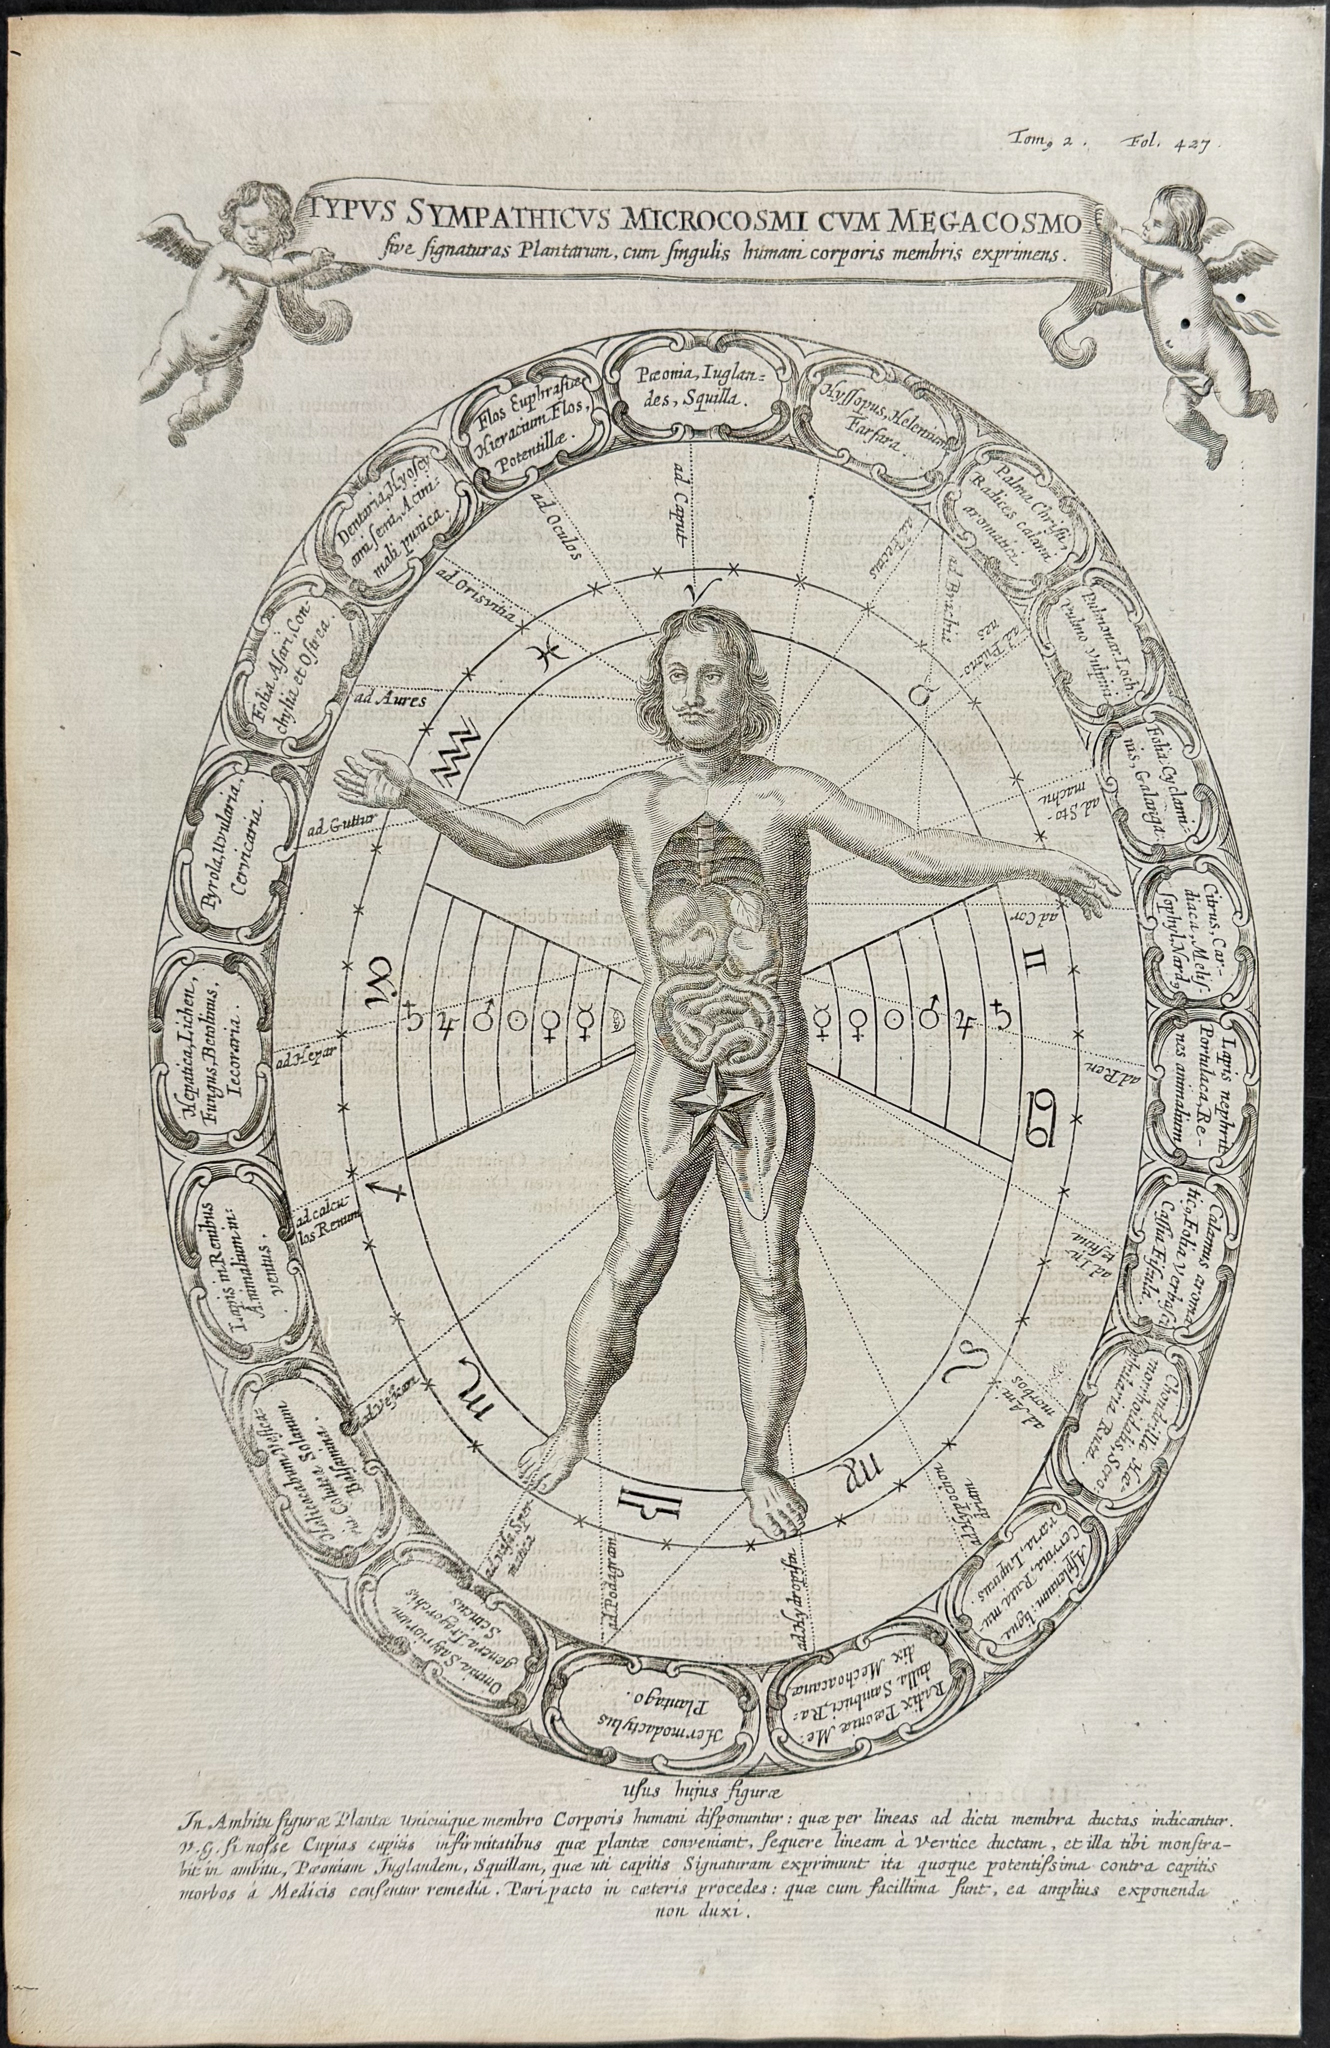 Tom, 2. Fol. 427.
TYPVS SYMPATHICVS MICROCOSMI CVM MEGACOSMO
sive signaturas Plantarum, cum singulis humani corporis membris exprimens.
Pæonia, Iuglan=
des, Squilla.
Hyssopus, Helenium
Farfara.
Palma Christi,
Radices calam
aromatici.
Pulmonar. Loch
pulmo vulpini
Folia Cyclami=
nis, Galanga.
Citrus, Car=
diaca, Melis
sophyl. Nard,
Lapis nephrit
Portulaca, Re=
nes animalium
Calamus aroma
tic, Folia Verbasci
Cassia Fistula.
Chondrilla Hæ=
morrhoidalis, Scro:
phularia Ruta.
Asplenium: ligna
Cervina, Ruta mu=
raria, Lupinus.
Radix Pæoniæ Me:
dulla Sambuci, Ra=
dix Mechoacanæ
Hermodactylus
Plantago.
Omnia Satyriorum
genera Tragorchis
Semens
Halicacabum Vesica=
ria Colutea Solanum
Balsamina.
Lapis in Renibus
Animalium in=
ventus.
Hepatica, Lichen,
Fungus, Betonnus,
Iecoraria.
Pyrola, Uvularia,
Cervicaria.
Folia Asari, Con=
chylia et Ostrea
Dentaria, Hyoscy
ami semi, Acini
mali punica.
Flos Euphrasiæ
Hieracium Flos,
Potentillæ.
ad Caput
ad Oculos
ad Oris vitia
ad Aures
ad Guttur
ad Hepar
ad calcu
los Renum
ad Vesicam
ad Vasa Sper
matica
ad Podagram
ad Hypochon
drium
ad Am
morbos
ad In=
testina
ad Ren
ad Cor
ad Sto=
machu
ad Pulmo
nes
ad Brachii
ad Pectus
♈ ♉ ♊ ♋ ♌ ♍ ♎ ♏ ♐ ♒ ♓
♄ ♃ ♂ ☉ ♀ ☿ ☽
☿ ♀ ☉ ♂ ♃ ♄
Usus hujus figuræ
In Ambitu figuræ Plantæ unicuique membro Corporis humani disponuntur: quæ per lineas ad dicta membra ductas indicantur.
v. G. si nosse Cupias capitis infirmitatibus quæ plantæ conveniant, sequere lineam à vertice ductam, et illa tibi monstra=
bit in ambitu, Pæoniam Juglandem, Squillam, quæ uti capitis Signaturam exprimunt ita quoque potentissima contra capitis
morbos á Medicis censentur remedia. Pari pacto in cæteris procedes: quæ cum facillima sunt, ea amplius exponenda
non duxi.